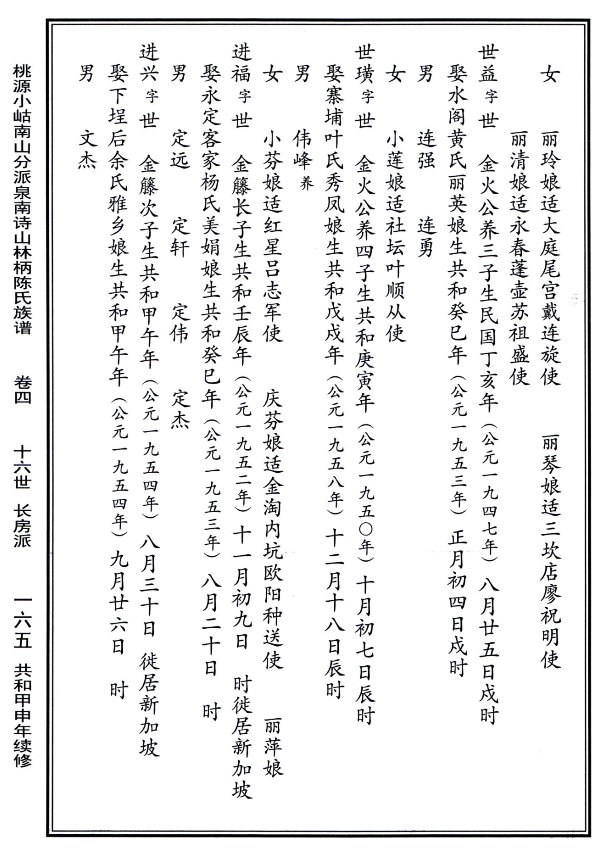 女 丽玲娘适大庭尾宫戴连旋使 丽琴娘适三坎店廖祝明使
丽清娘适永春蓬壶苏祖盛使
世益字世 金火公养三子生民国丁亥年（公元一九四七年）八月廿五日戌时
娶水阁黄氏丽英娘生共和癸巳年（公元一九五三年）正月初四日戌时
男 连强 连勇
女 小莲娘适社坛叶顺从使
世璜字世 金火公养四子生共和庚寅年（公元一九五〇年）十月初七日辰时
娶寨埔叶氏秀凤娘生共和戊戌年（公元一九五八年）十二月十八日辰时
男 伟峰养
女 小芬娘适红星吕志军使 庆芬娘适金淘内坑欧阳种送使 丽萍娘
进福字世 金籐长子生共和壬辰年（公元一九五二年）十一月初九日 时徙居新加坡
娶永定客家杨氏美娟娘生共和癸巳年（公元一九五三年）八月二十日 时
男 定远 定轩 定伟 定杰
进兴字世 金籐次子生共和甲午年（公元一九五四年）八月三十日 徙居新加坡
娶下埕后余氏雅乡娘生共和甲午年（公元一九五四年）九月廿六日 时
男 文杰
桃源小岵南山分派泉南诗山林柄陈氏族谱 卷四 十六世 长房派 一六五 共和甲申年续修